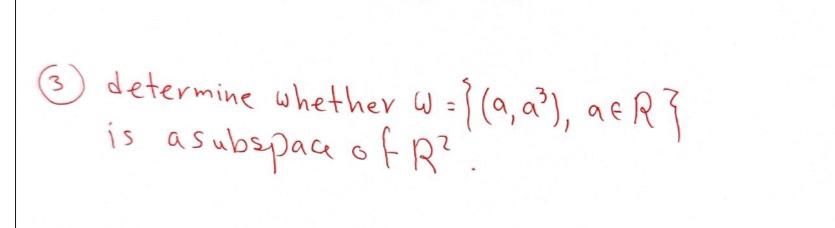 ③ determine whether W = {(a, a³), a ∈ R}
is a subspace of R².